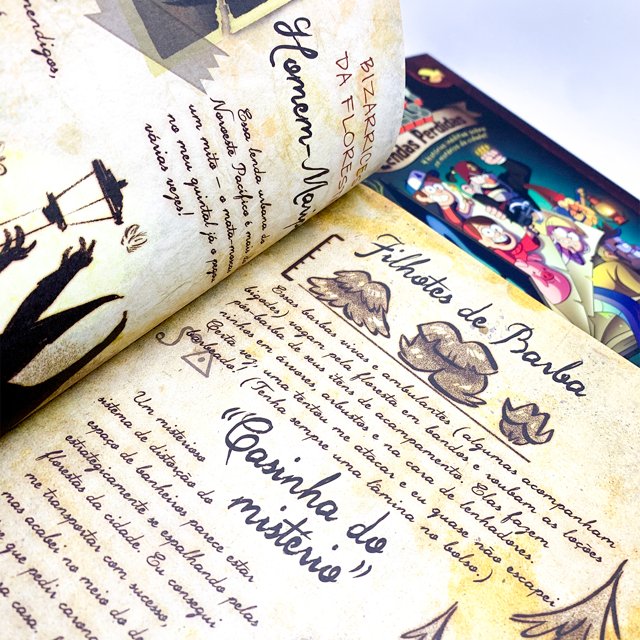 mendigos,
Homem-Mari
BIZARRICE
DA FLORES
Essa lenda urbana do
Noroeste Pacífico é mais
um mito – o
no meu quintal já o peg
várias vezes!
endas Perdidas
Filhotes de Barba
Essas barbas vivas e ambulantes (algumas acompanham
lagoles) vagam pela floresta em bandos e roubam as loções
pós-barba de seus itens de acampamento. Eles fazem
ninhos em árvores, arbustos e na cara de lenhadores.
Certa vez, uma tentou me atacar e eu quase não escapei
barbeado! (Tenha sempre uma lâmina no bolso)
"Casinha do
mistério"
Um misterioso
sistema de distorção do
espaço de banheiros parece estar
estrategicamente se espalhando pelas
florestas da cidade. Eu consegui
me transportar com sucesso,
mas acabei no meio do de
que pedir carona
a casa.